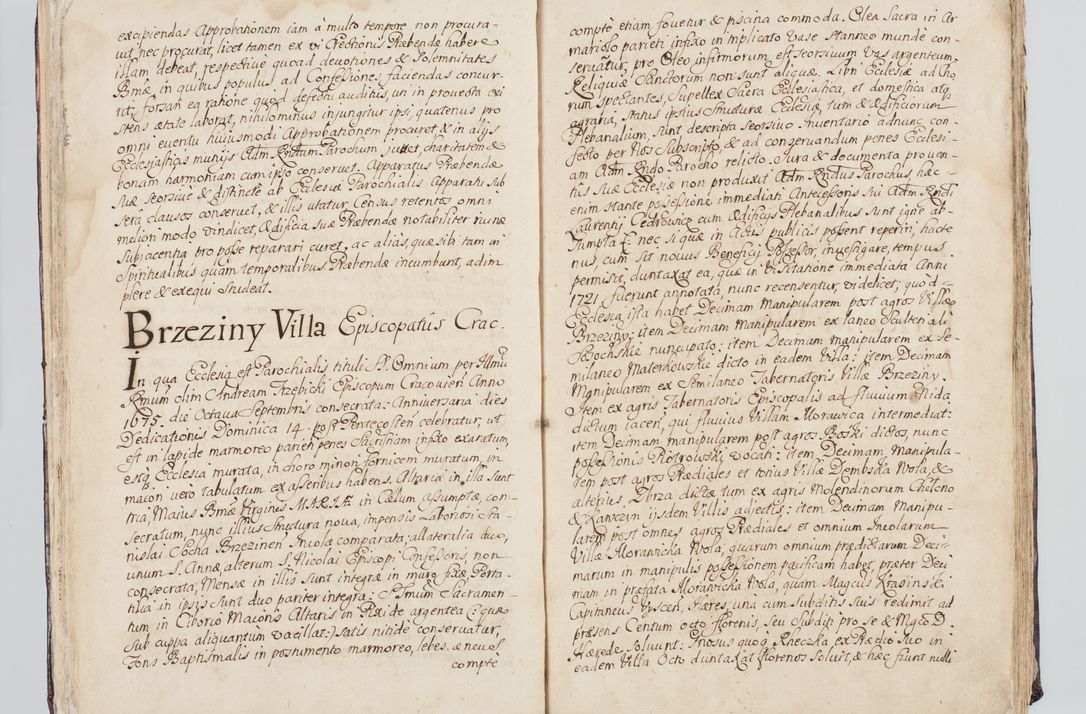 excipiendas Approbationem iam à multo tempore non procura-
vit, nec procurat, licet tamen ex vi Erectionis Præbendæ habere
illam debeat, respectivè quoad devotiones & solemnitates
Bmæ, in quibus populus ad Confessiones faciendas concur-
rit; forsan ea ratione quod defectu auditus, uti in provecta exi
stens ætate laborat, nihilominus injungitur ipsi, quatenus pro
omni eventu huiusmodi Approbationem procuret & in alijs
Ecclesiasticis munijs Adm Rndum Parochum juvet, charitatem &
bonam harmoniam cum ipso conservet. Apparatus Præbendæ
suæ seorsivè & distinctè ab Ecclesiæ Parochialis Apparatu sub
sera clausos conservet, & illis utatur, Census retentos omni
meliori modo vindicet, Ædificia suæ Præbendæ notabiliter ruinæ
subjacentia pro posse reparari curet, ac alias, quæ sibi tam in
Spiritualibus quàm temporalibus Præbendæ incumbunt, adim
plere & exequi studeat.
Brzeziny Villa Episcopatus Crac.
In qua Ecclesia est Parochialis tituli SS. Omnium per Illmu
Rmum olim Andream Trzebicki Episcopum Cracovien Anno
1675. die Octava Septembris consecrata: Anniversaria dies
Dedicationis Dominica 14. post Pentecosten celebratur, ut
est in lapide marmoreo parieti penes Sacristiam infixo exaratum,
estq Ecclesia murata, in choro minori fornicem muratum, in
maiori vero tabulatum ex asseribus habens. Altaria in illa sunt
tria, Maius Bmæ Virginis MARIÆ in Cælum assumptæ, con-
secratum, nunc illius structura nova, impensis Laboriosi Sta-
nislai Socha Brzezinen Incolæ comparata; allateralia duo,
unum S. Annæ, alterum S. Nicolai Episcopi Confessoris, non
consecrata, Mensæ in illis sunt integræ in muro fixæ, Porta-
tilia in ipsis sunt duo pariter integra: SSmum Sacramen-
tum in Ciborio Maioris Altaris in Pixide argentea (: quæ
sub cuppa aliquantum vacillat :) satis nitidè conservatur,
Fons Baptismalis in postumento marmoreo, lebes æneus
comptè
comptè etiam fovetur & piscina commoda. Olea Sacra in Ar
mariolo parieti infixo in triplicato vase stanneo mundè con-
servantur, pro Oleo infirmorum est seorsivum vas argenteum.
Reliquiæ Sanctorum non sunt aliquæ. Libri Ecclesiæ ad Cho
rum spectantes, Supellex Sacra Ecclesiastica, et domestica atq
agraria, status ipsius structuræ Ecclesiæ, tum & Ædificiorum
Plebanalium, sunt descripta seorsivo Inventario adnunc con-
fecto per Nos subscripto, & ad conservandum penes Ecclesi-
am Adm Rndo Parocho relicto. Iura & documenta proven-
tus suæ Ecclesiæ non produxit Adm Rndus Parochus, hæc
enim stante possessione immediati Antecessoris sui Adm Rndi
Laurentij Cedrowicz cum Ædificijs Plebanalibus sunt igne ab-
sumpta & nec si quæ in Actis publicis possent reperiri, hacte
nus, cum sit novus Beneficij Possessor, investigare, tempus
permisit, duntaxat ea, quæ in Visitatione immediata Anni
1721. fuerunt annotata, nunc recensentur, videlicet, quòd
Ecclesia ista habet Decimam Manipularem post agros Villæ
Brzeziny; item Decimam Manipularem ex laneo Sculteti ali
Bochskie nuncupato: item Decimam manipularem ex Se-
milaneo Materkowskie dicto in eadem Villa: item Decimam
Manipularem ex Semilaneo Tabernatoris Villæ Brzeziny.
Item ex agris Tabernatoris Episcopalis ad fluvium Nida
dictum iacen, qui fluvius Villam Morawica intermediat:
item Decimam manipularem post agros Boski dictos, nunc
possessionis Piotrowski vocati: item Decimam Manipula-
rem post agros Prædiales et totius Villæ Dembska Wola, &
alterius Obrza dictæ tum ex agris Molendinorum Chełeno
& Kawczyn ijsdem Villis adjectis: item Decimam Manipu-
larem post omnes agros Prædiales et omnium Incolarum
Villæ Morawicka Wola, quarum omnium prædictarum Deci-
marum in manipulis possessionem pacificam habet, præter Deci
mam in præfata Morawicka Wola, quam Magcus Krasinski
Capitaneus Nyscen, Hæres, una cum Subditis suis redimit ad
præsens Centum octo florenis, seu Subditi pro se & Mgco D.
Hærede solvunt: Gnosus quoq Kneczka ex Prædio suo in
eadem Villa Octo duntaxat florenos solvit, & hæc fiunt nulli